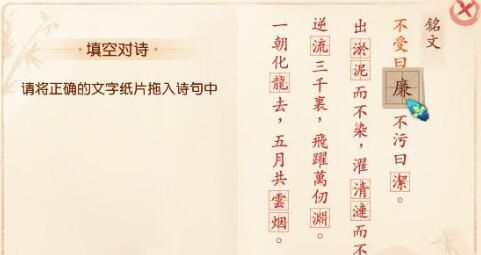 填空对诗
请将正确的文字纸片拖入诗句中
銘文
不受曰廉，不污曰潔。
出淤泥而不染，濯清漣而不
逆流三千裏，飛躍萬仞淵。
一朝化龍去，五月共雲烟。